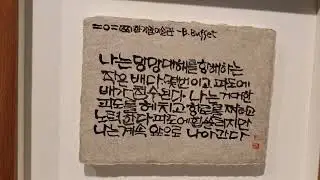 -B. Buffet
나는 망망대해를 항해하는
작은 배다. 몇번이고 파도에
배가 침수된다. 나는 거대한
파도를 헤치고 항로를 찾으려고
노력한다. 파도에 휩쓸리지만
나는 계속 앞으로 나아간다